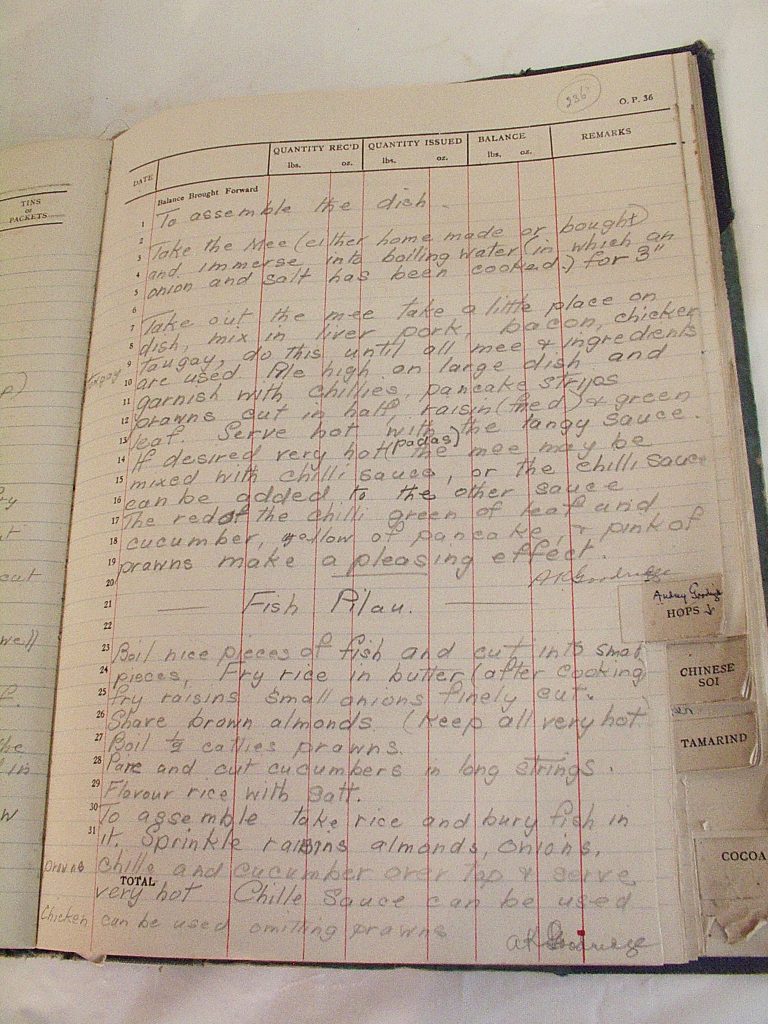 TINS
or
PACKETS
236
O. P. 36
DATE
QUANTITY REC'D
lbs. oz.
QUANTITY ISSUED
lbs. oz.
BALANCE
lbs. oz.
REMARKS
Balance Brought Forward
1 To assemble the dish.
2
3 Take the Mee (either home made or bought)
4 and immerse into boiling water (in which an
5 onion and salt has been cooked) for 3"
6
7 Take out the mee take a little place on
8 dish, mix in liver pork, bacon, chicken
9 Taugay, do this until all mee & ingredients
10 are used Pile high on large dish and
11 garnish with chillies, pancake strips
12 prawns cut in half raisin (fried) & green
13 leaf. Serve hot with the tangy sauce.
14 If desired very hot (padas) the mee may be
15 mixed with chilli sauce, or the chilli sauce
16 can be added to the other sauce
17 The red of the chilli green of leaf and
18 cucumber, yellow of pancake, & pink of
19 prawns make a pleasing effect.
20 AKGoodridge
21 Fish Pilau.
22
23 Boil nice pieces of fish and cut into small
24 pieces, Fry rice in butter (after cooking)
25 fry raisins small onions finely cut.
26 Shave brown almonds (keep all very hot
27 Boil 1/2 catties prawns.
28 Pare and cut cucumbers in long strings.
29 Flavour rice with salt.
30 To assemble take rice and bury fish in
31 it. Sprinkle raisins almonds, onions,
prawns chille and cucumber over top & serve
TOTAL
very hot Chille Sauce can be used
Chicken can be used omitting prawns
AKGoodridge
Audrey Goodridge
HOPS
CHINESE
SOI
TAMARIND
COCOA